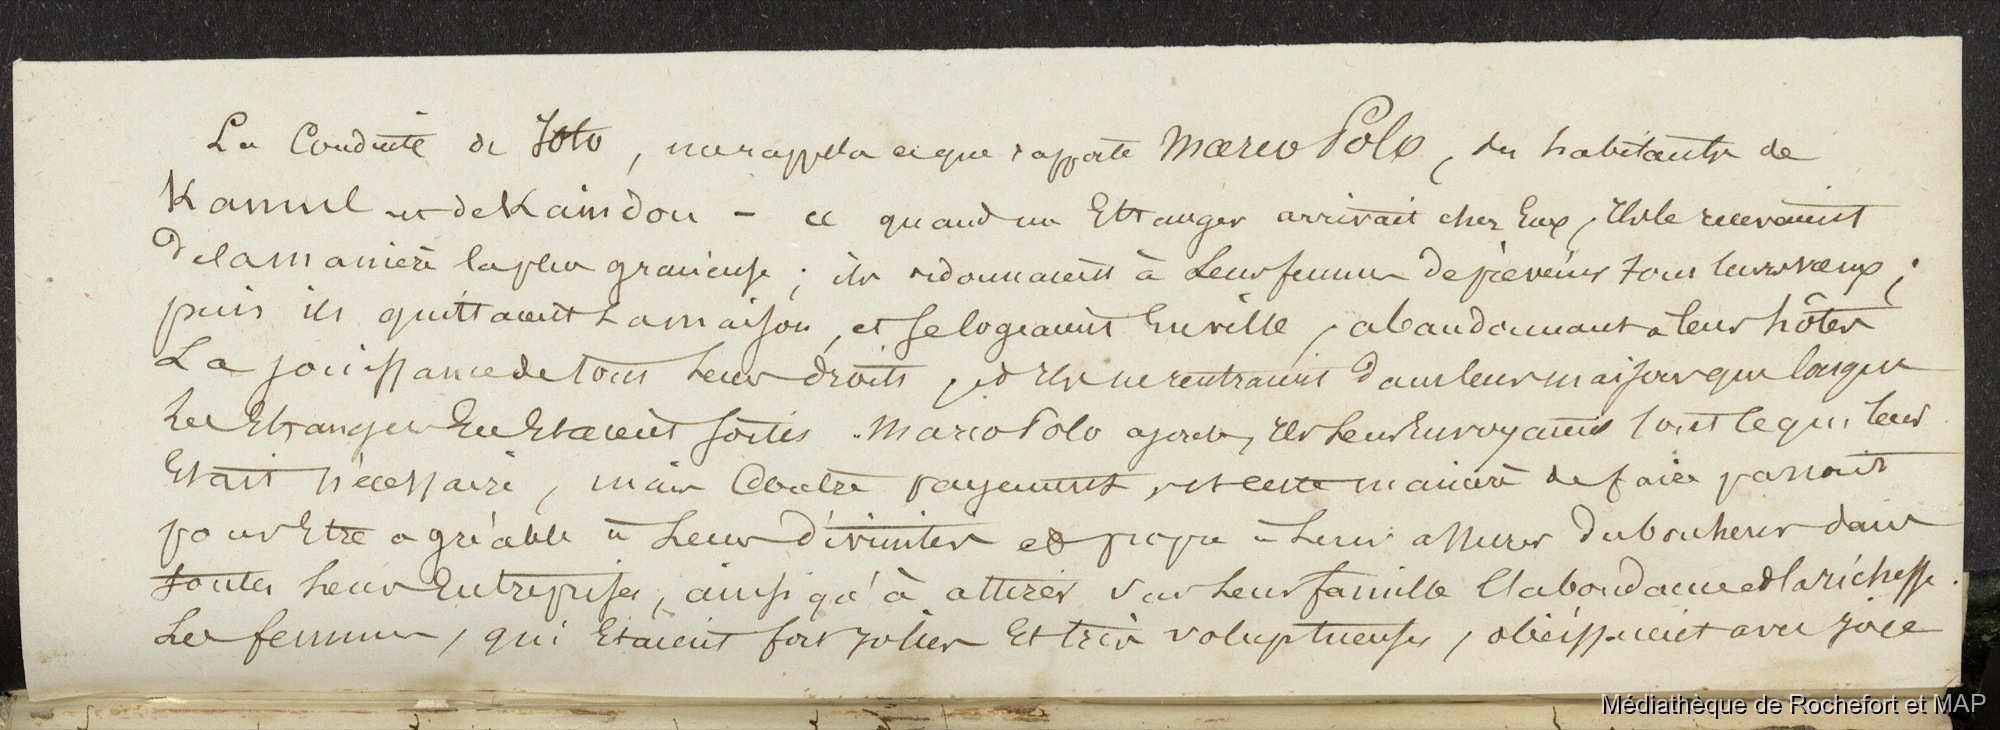 La Conduite de Toto, me rappela ce que rapporte Marco Polo, des habitants de
Kamul et de Kaindou - ce quand un Etranger arrivait chez Eux, ils le recevaient
de la maniere la plus gracieuse ; ils ordonnaient à Leurs femmes de prévenir tous leurs vœux ;
puis ils quittaient La maison, et se logeaient En ville, abandonnant a leurs hôtes
La jouissance de tous Leurs droits, et ils ne rentraient dans leurs maisons que lorsque
Les Etrangers En Etaient sortis. Marco Polo ajoute, ils Leur Envoyaient tout ce qui leur
Etait nécessaire, mais Contre payement, et cette maniere de faire passait
pour Etre agréable à Leurs divinités et propre à Leur assurer du bonheur dans
toutes Leurs Entreprises, ainsi qu'à attirer sur Leurs familles L'abondance et la richesse.
Les femmes, qui Etaient fort jolies Et très voluptueuses, obéissaient avec joie
Médiathèque de Rochefort et MAP